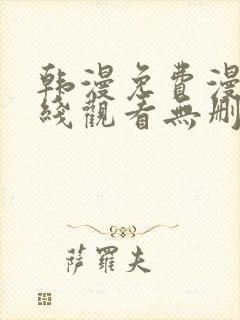 韩漫免費漫
綫觀看無刪
萨羅夫